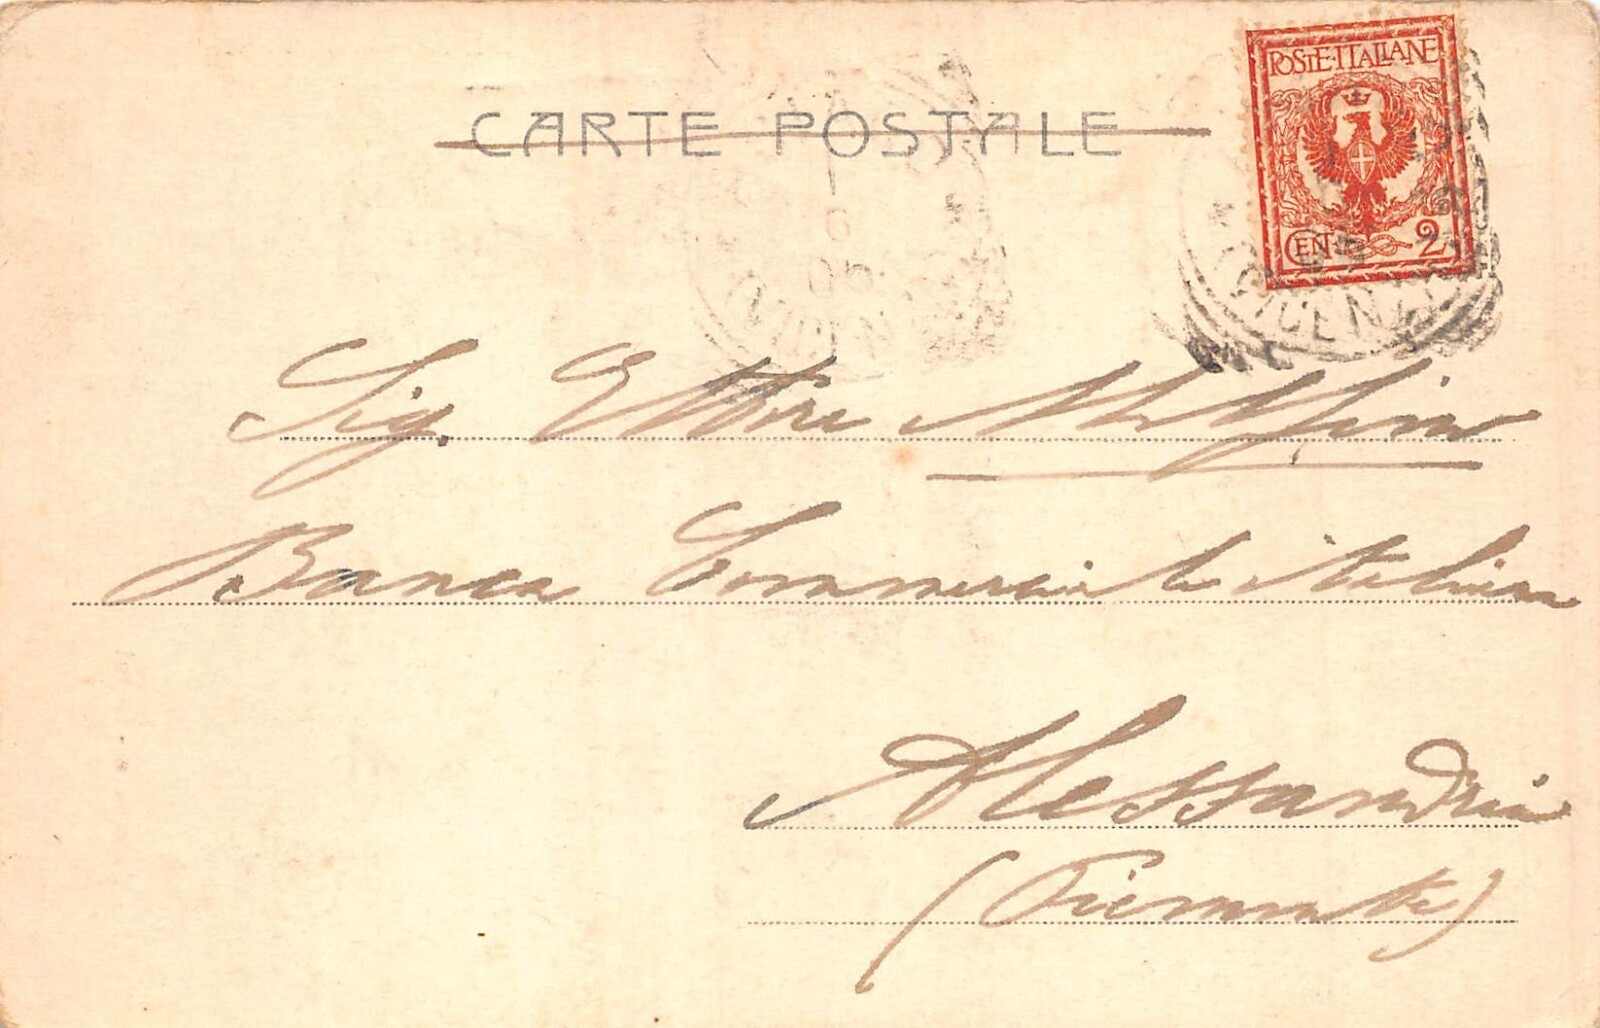 POSTE·ITALIANE
CARTE POSTALE
CENT. 2
6
05
(VICENZA)
Sig. Ettore
Banca Commerciale Italiana
Alessandria
(Piemonte)